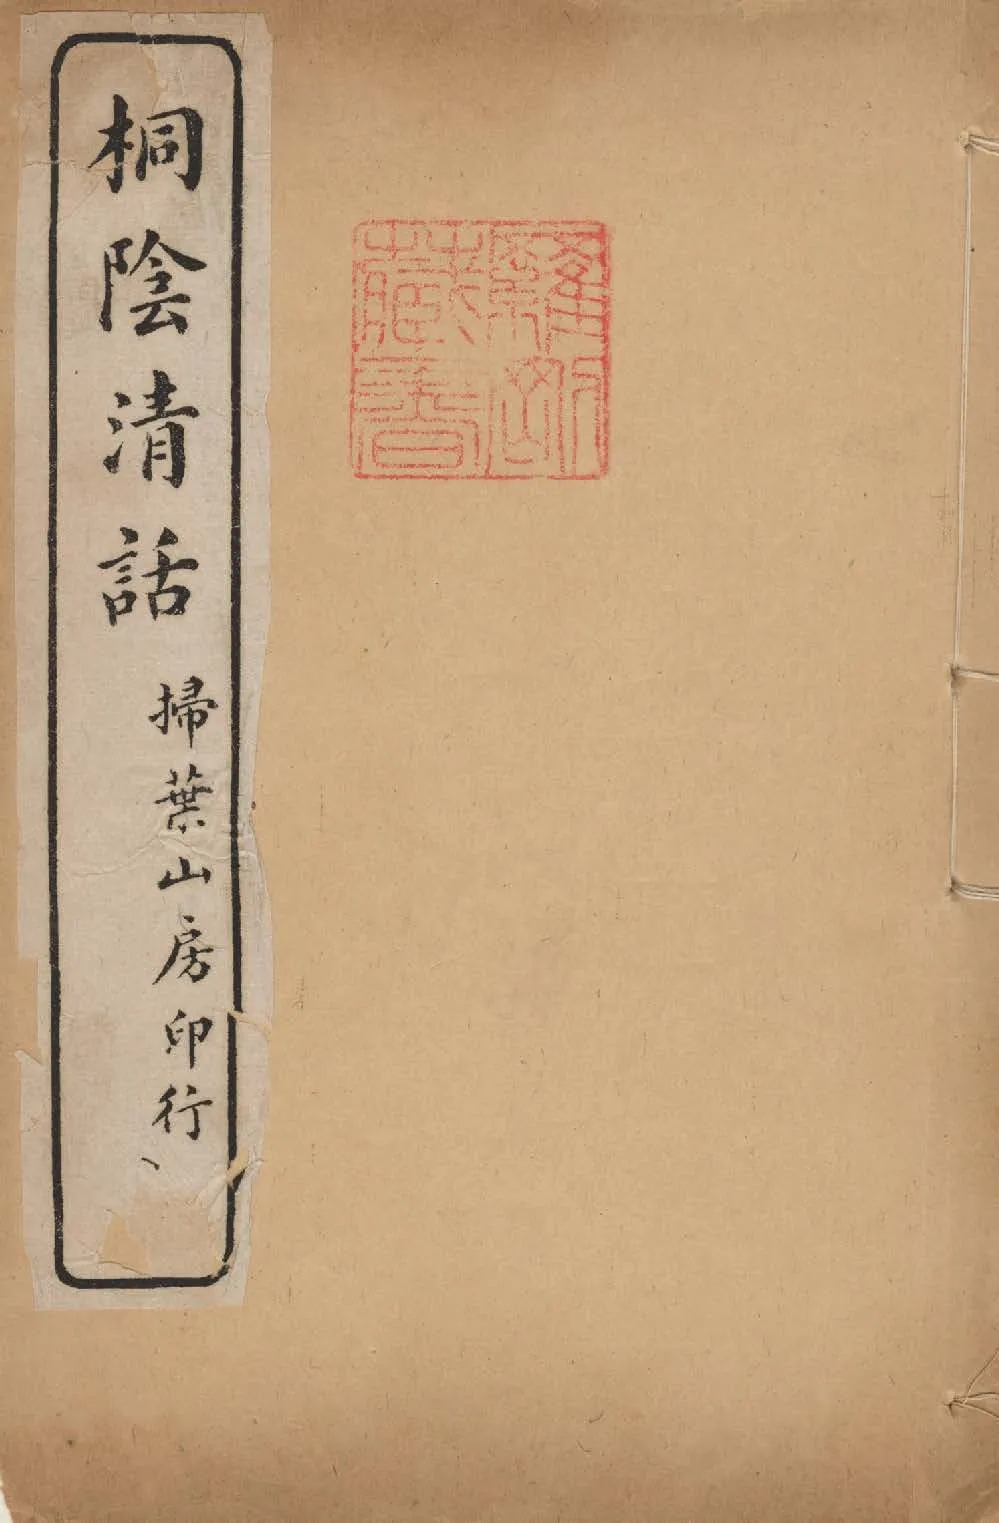 桐陰清話
掃葉山房印行
藏書